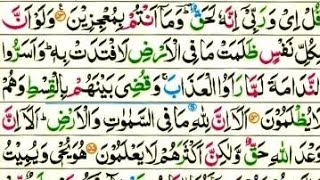 قُلْ اِىْ وَرَبِّىْۤ اِنَّهٗ لَحَقٌّ ؔۚ وَمَاۤ اَنْتُمْ بِمُعْجِزِيْنَ ۞ وَلَوْ اَنَّ
لِكُلِّ نَفْسٍ ظَلَمَتْ مَا فِى الْاَرْضِ لَافْتَدَتْ بِهٖ ؕ وَاَسَرُّوا
النَّدَامَةَ لَمَّا رَاَوُا الْعَذَابَ ۚ وَقُضِىَ بَيْنَهُمْ بِالْقِسْطِ وَهُمْ
لَا يُظْلَمُوْنَ ۞ اَلَاۤ اِنَّ لِلّٰهِ مَا فِى السَّمٰوٰتِ وَالْاَرْضِ ؕ اَلَاۤ اِنَّ
وَعْدَ اللّٰهِ حَقٌّ وَّلٰكِنَّ اَكْثَرَهُمْ لَا يَعْلَمُوْنَ ۞ هُوَ يُحْىٖ وَيُمِيْتُ